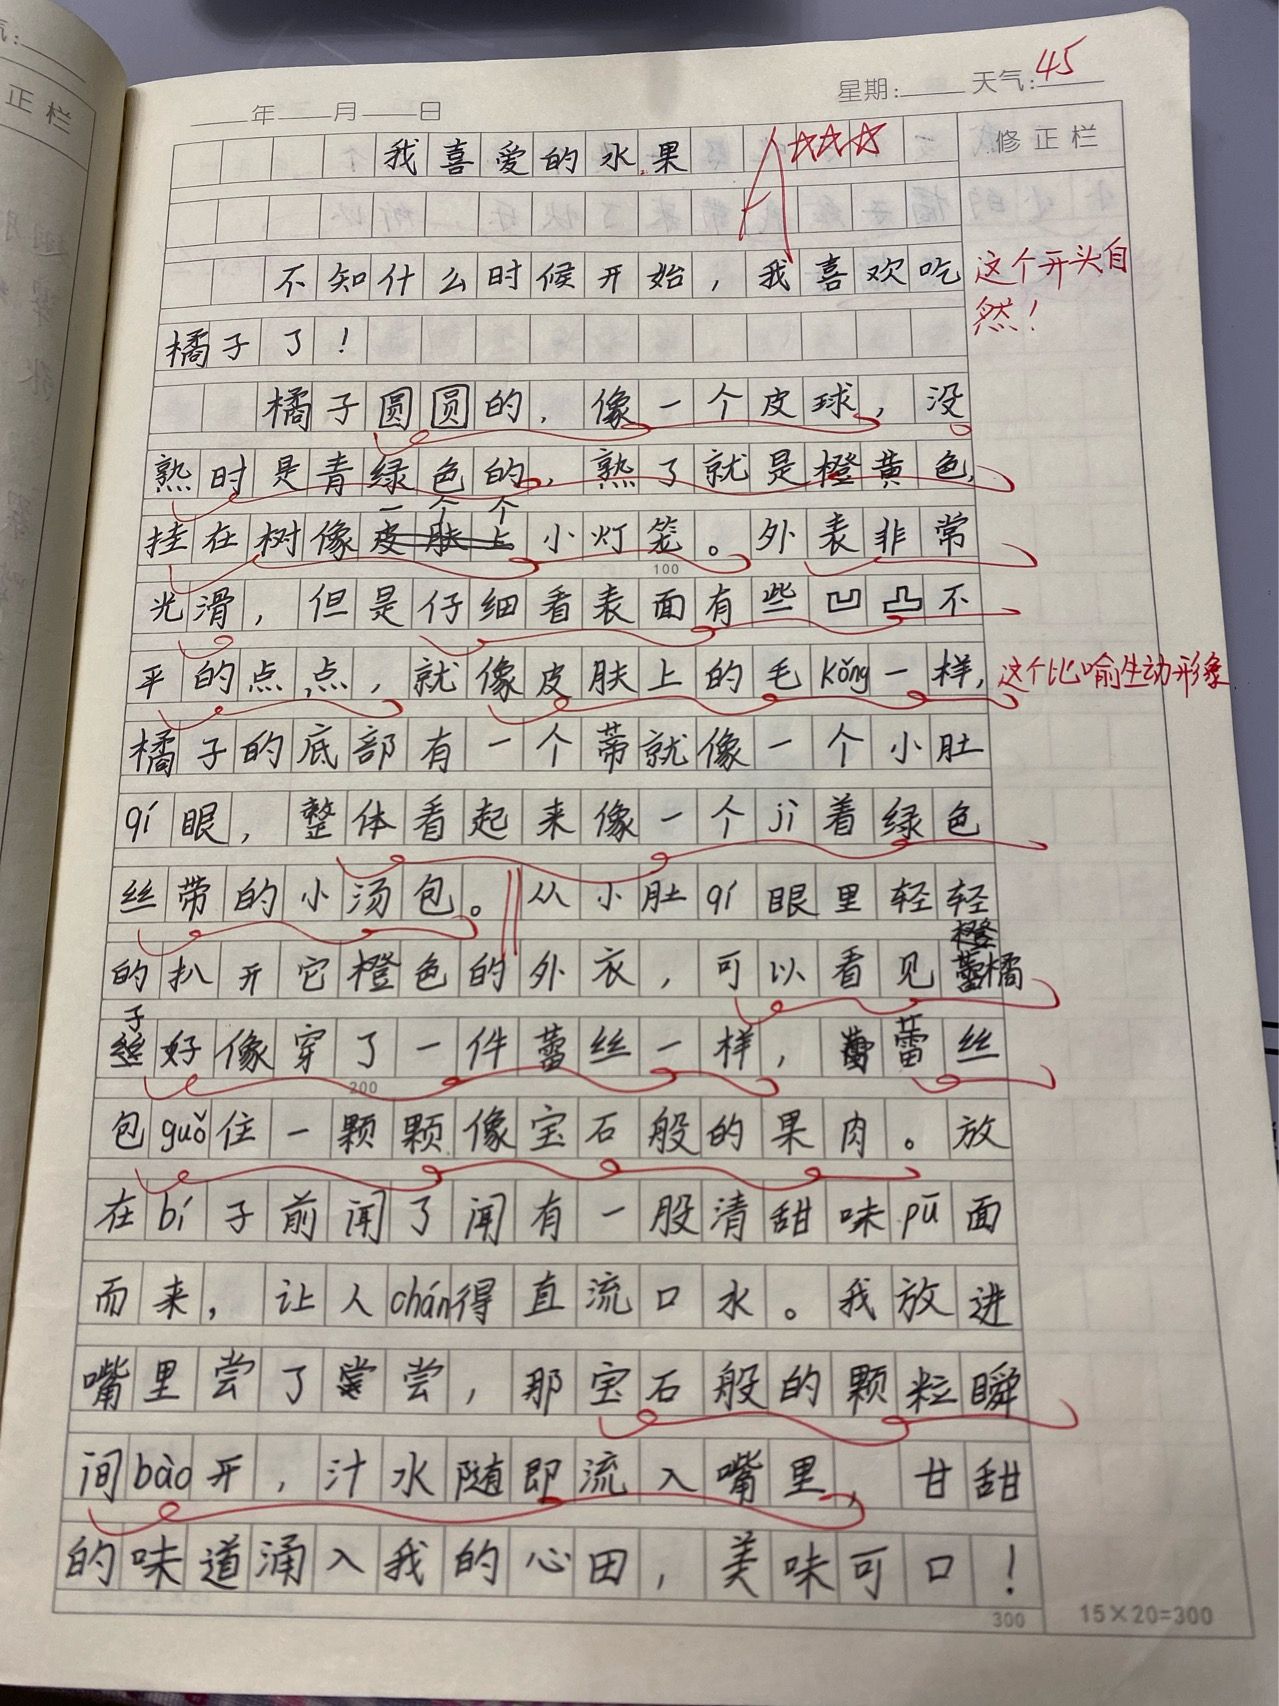 气:
正栏
年 月 日 星期: 天气: 45
我喜爱的水果 A 修正栏
不知什么时候开始，我喜欢吃 这个开头自
橘子了！ 然！
橘子圆圆的，像一个皮球，没
熟时是青绿色的，熟了就是橙黄色，
一个个
挂在树像皮肤上小灯笼。外表非常
100
光滑，但是仔细看表面有些凹凸不
平的点点，就像皮肤上的毛kǒng一样， 这个比喻生动形象
橘子的底部有一个蒂就像一个小肚
qí眼，整体看起来像一个jì着绿色
丝带的小汤包。从小肚qí眼里轻轻
橙
的扒开它橙色的外衣，可以看见橘
子
好像穿了一件蕾丝一样，蕾丝
200
包guǒ住一颗颗像宝石般的果肉。放
在bí子前闻了闻有一股清甜味pū面
而来，让人chán得直流口水。我放进
嘴里尝了尝尝，那宝石般的颗粒瞬
间bào开，汁水随即流入嘴里，甘甜
的味道涌入我的心田，美味可口！
300 15×20=300